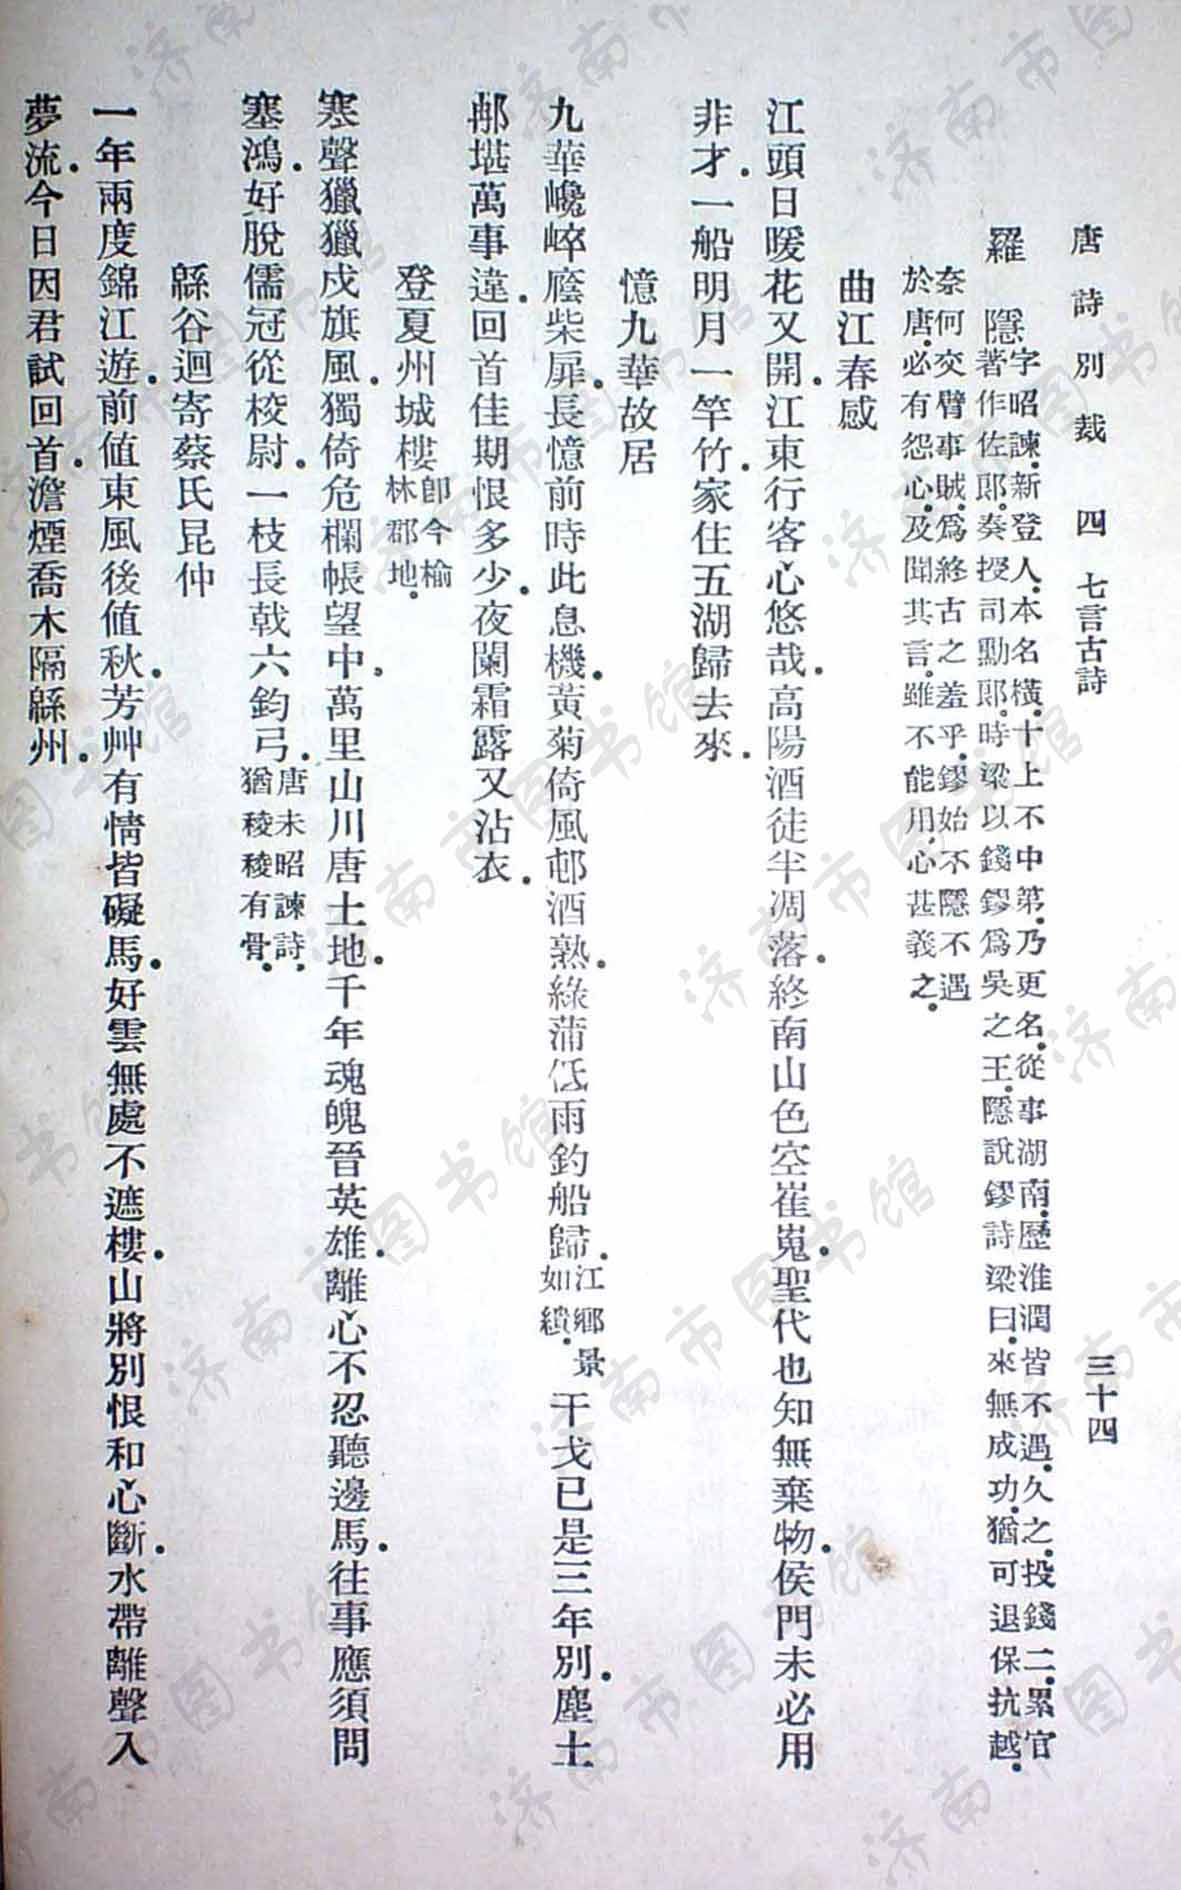 唐詩別裁 四 七言古詩 三十四
羅隱
字昭諫．新登人．本名橫．十上不中第．乃更名．從事湖南．歷淮潤皆不遇．久之．投錢二．累官
著作佐郎．奏授司勳郎．時梁以錢鏐爲吳之王．隱說鏐詩梁曰．來無成功．猶可退保抗越．
奈何交臂事賊．爲終古之羞乎．鏐始不隱不遇
於唐．必有怨心．及聞其言．雖不能用．心甚義之．
曲江春感
江頭日暖花又開．江東行客心悠哉．高陽酒徒半凋落．終南山色空崔嵬．聖代也知無棄物．侯門未必用
非才．一船明月一竿竹．家住五湖歸去來．
憶九華故居
九華巉崪廕柴扉．長憶前時此息機．黃菊倚風邨酒熟．綠蒲低雨釣船歸．江鄉景如繢．干戈已是三年別．塵土
那堪萬事違．回首佳期恨多少．夜闌霜露又沾衣．
登夏州城樓 卽今榆林郡地．
寒聲獵獵戍旗風．獨倚危欄帳望中．萬里山川唐土地．千年魂魄晉英雄．離心不忍聽邊馬．往事應須問
塞鴻．好脫儒冠從校尉．一枝長戟六鈞弓．唐末昭諫詩．猶稜稜有骨．
緜谷迴寄蔡氏昆仲
一年兩度錦江遊．前値東風後値秋．芳艸有情皆礙馬．好雲無處不遮樓．山將別恨和心斷．水帶離聲入
夢流．今日因君試回首．澹煙喬木隔緜州．